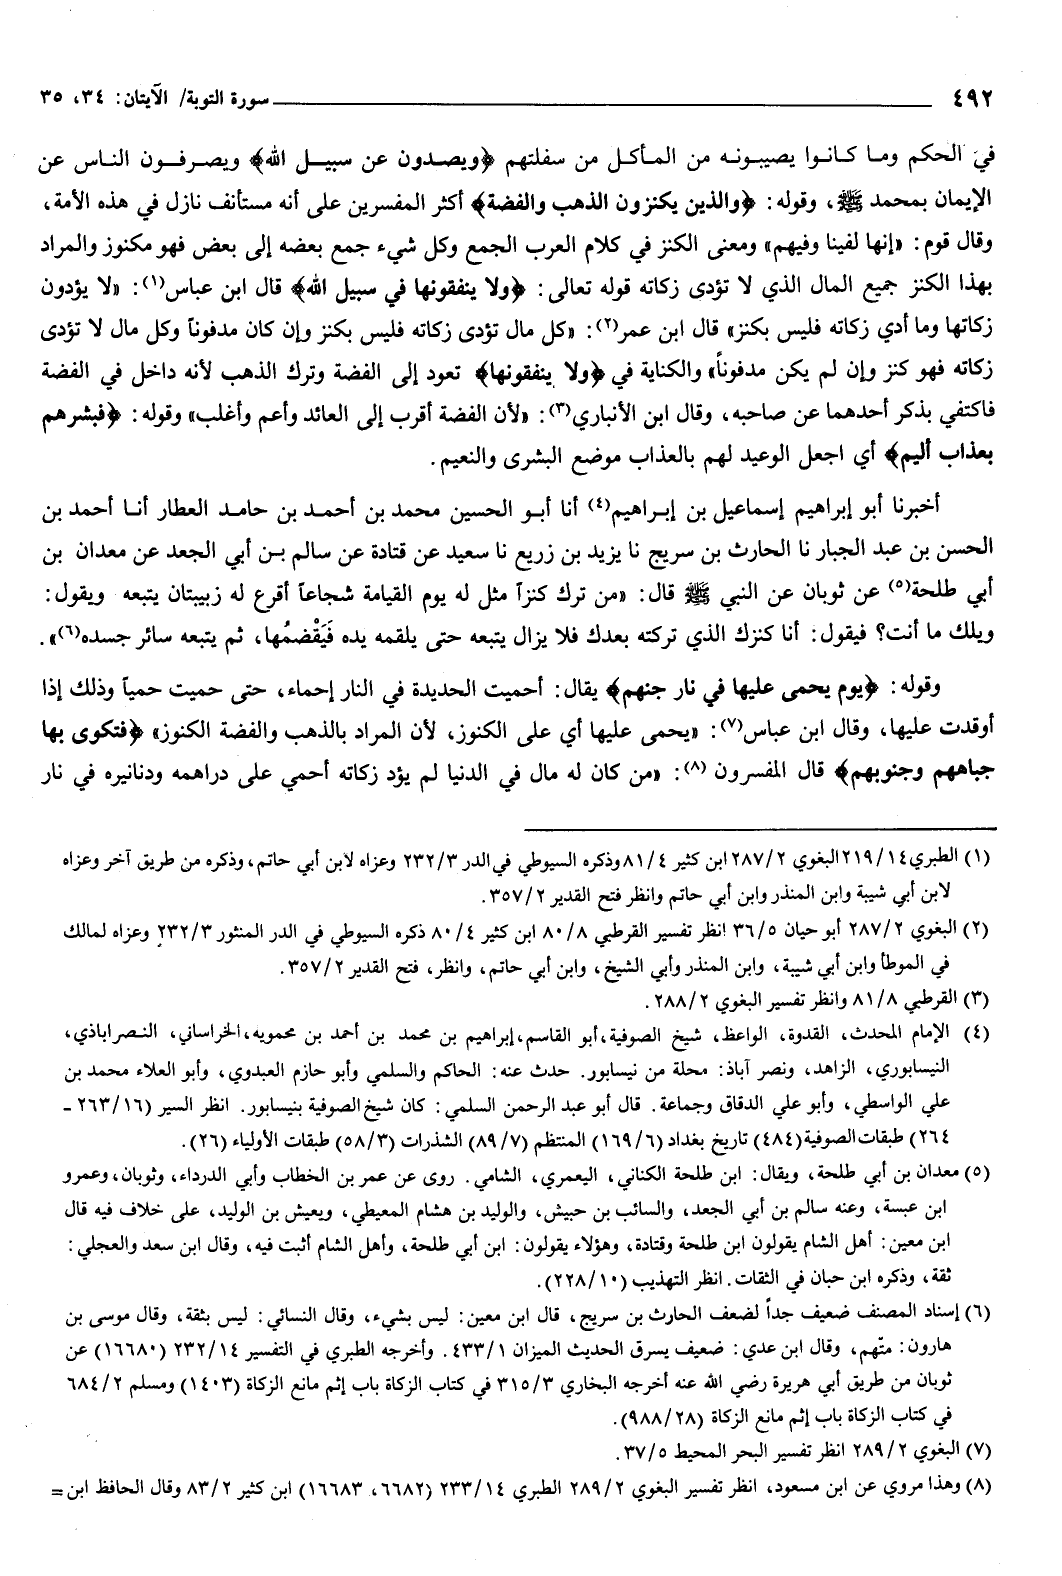 ٤٩٢ سورة التوبة/ الآيتان: ٣٤، ٣٥
في الحكم وما كانوا يصيبونه من المأكل من سفلتهم ﴿ويصدون عن سبيل الله﴾ ويصرفون الناس عن
الإيمان بمحمد ﷺ، وقوله: ﴿والذين يكنزون الذهب والفضة﴾ أكثر المفسرين على أنه مستأنف نازل في هذه الأمة،
وقال قوم: «إنها لفينا وفيهم» ومعنى الكنز في كلام العرب الجمع وكل شيء جمع بعضه إلى بعض فهو مكنوز والمراد
بهذا الكنز جميع المال الذي لا تؤدى زكاته قوله تعالى: ﴿ولا ينفقونها في سبيل الله﴾ قال ابن عباس(١): «لا يؤدون
زكاتها وما أدي زكاته فليس بكنز» قال ابن عمر(٢): «كل مال تؤدى زكاته فليس بكنز وإن كان مدفوناً وكل مال لا تؤدى
زكاته فهو كنز وإن لم يكن مدفوناً» والكناية في ﴿ولا ينفقونها﴾ تعود إلى الفضة وترك الذهب لأنه داخل في الفضة
فاكتفي بذكر أحدهما عن صاحبه، وقال ابن الأنباري(٣): «لأن الفضة أقرب إلى العائد وأعم وأغلب» وقوله: ﴿فبشرهم
بعذاب أليم﴾ أي اجعل الوعيد لهم بالعذاب موضع البشرى والنعيم.
أخبرنا أبو إبراهيم إسماعيل بن إبراهيم(٤) أنا أبو الحسين محمد بن أحمد بن حامد العطار أنا أحمد بن
الحسن بن عبد الجبار نا الحارث بن سريج نا يزيد بن زريع نا سعيد عن قتادة عن سالم بن أبي الجعد عن معدان بن
أبي طلحة(٥) عن ثوبان عن النبي ﷺ قال: «من ترك كنزاً مثل له يوم القيامة شجاعاً أقرع له زبيبتان يتبعه ويقول:
ويلك ما أنت؟ فيقول: أنا كنزك الذي تركته بعدك فلا يزال يتبعه حتى يلقمه يده فَيَقْضمُها، ثم يتبعه سائر جسده(٦)».
وقوله: ﴿يوم يحمى عليها في نار جنهم﴾ يقال: أحميت الحديدة في النار إحماء، حتى حميت حمياً وذلك إذا
أوقدت عليها، وقال ابن عباس(٧): «يحمى عليها أي على الكنوز، لأن المراد بالذهب والفضة الكنوز» ﴿فتكوى بها
جباههم وجنوبهم﴾ قال المفسرون (٨): «من كان له مال في الدنيا لم يؤد زكاته أحمي على دراهمه ودنانيره في نار
(١) الطبري ٢١٩/١٤ البغوي ٢٨٧/٢ ابن كثير ٨١/٤ وذكره السيوطي في الدر ٢٣٢/٣ وعزاه لابن أبي حاتم، وذكره من طريق آخر وعزاه
لابن أبي شيبة وابن المنذر وابن أبي حاتم وانظر فتح القدير ٣٥٧/٢.
(٢) البغوي ٢٨٧/٢ أبو حيان ٣٦/٥ انظر تفسير القرطبي ٨٠/٨ ابن كثير ٨٠/٤ ذكره السيوطي في الدر المنثور ٢٣٢/٣ وعزاه لمالك
في الموطأ وابن أبي شيبة، وابن المنذر وأبي الشيخ، وابن أبي حاتم، وانظر، فتح القدير ٣٥٧/٢.
(٣) القرطبي ٨١/٨ وانظر تفسير البغوي ٢٨٨/٢.
(٤) الإمام المحدث، القدوة، الواعظ، شيخ الصوفية، أبو القاسم، إبراهيم بن محمد بن أحمد بن محمويه، الخراساني، النصراباذي،
النيسابوري، الزاهد، ونصر آباذ: محلة من نيسابور. حدث عنه: الحاكم والسلمي وأبو حازم العبدوي، وأبو العلاء محمد بن
علي الواسطي، وأبو علي الدقاق وجماعة. قال أبو عبد الرحمن السلمي: كان شيخ الصوفية بنيسابور. انظر السير (٢٦٣/١٦ -
٢٦٤) طبقات الصوفية (٤٨٤) تاريخ بغداد (١٦٩/٦) المنتظم (٨٩/٧) الشذرات (٥٨/٣) طبقات الأولياء (٢٦).
(٥) معدان بن أبي طلحة، ويقال: ابن طلحة الكناني، اليعمري، الشامي. روى عن عمر بن الخطاب وأبي الدرداء، وثوبان، وعمرو
ابن عبسة، وعنه سالم بن أبي الجعد، والسائب بن حبيش، والوليد بن هشام المعيطي، ويعيش بن الوليد، على خلاف فيه قال
ابن معين: أهل الشام يقولون ابن طلحة وقتادة، وهؤلاء يقولون: ابن أبي طلحة، وأهل الشام أثبت فيه، وقال ابن سعد والعجلي:
ثقة، وذكره ابن حبان في الثقات. انظر التهذيب (٢٢٨/١٠).
(٦) إسناد المصنف ضعيف جداً لضعف الحارث بن سريج، قال ابن معين: ليس بشيء، وقال النسائي: ليس بثقة، وقال موسى بن
هارون: متّهم، وقال ابن عدي: ضعيف يسرق الحديث الميزان ٤٣٣/١. وأخرجه الطبري في التفسير ٢٣٢/١٤ (١٦٦٨٠) عن
ثوبان من طريق أبي هريرة رضي الله عنه أخرجه البخاري ٣١٥/٣ في كتاب الزكاة باب إثم مانع الزكاة (١٤٠٣) ومسلم ٦٨٤/٢
في كتاب الزكاة باب إثم مانع الزكاة (٩٨٨/٢٨).
(٧) البغوي ٢٨٩/٢ انظر تفسير البحر المحيط ٣٧/٥.
(٨) وهذا مروي عن ابن مسعود، انظر تفسير البغوي ٢٨٩/٢ الطبري ٢٣٣/١٤ (٦٦٨٢، ١٦٦٨٣) ابن كثير ٨٣/٢ وقال الحافظ ابن =